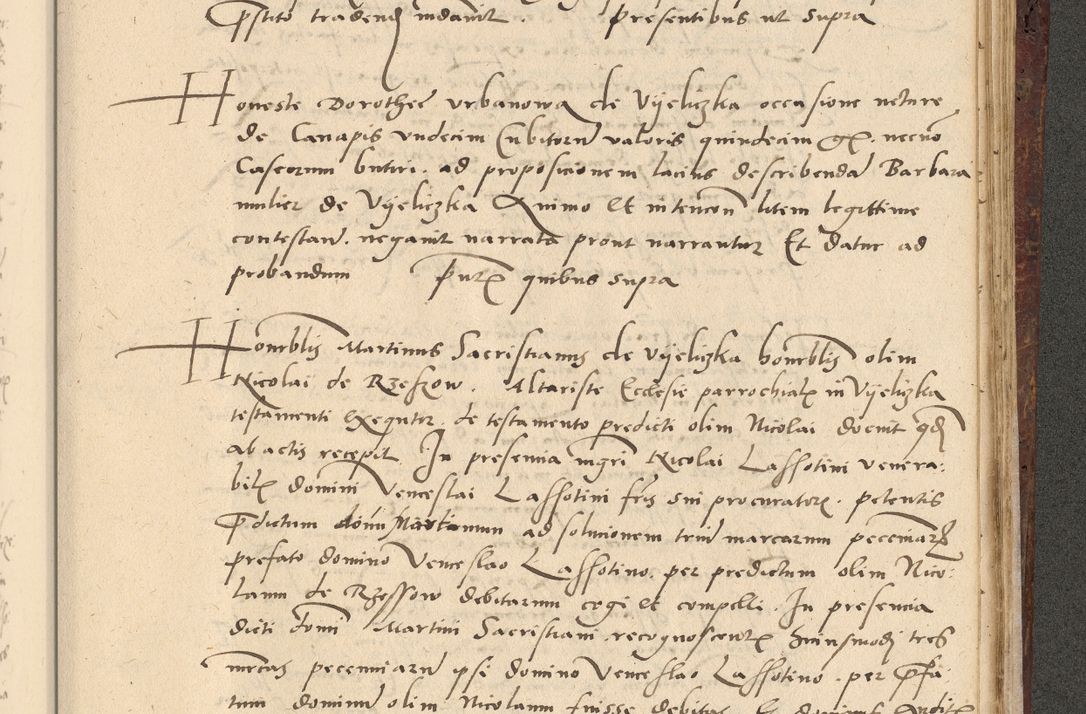 Pstito tradend indavit . Presentibus ut supra
Honeste Dorothee Urbanowa de Vijeliczka occasione neture
de Canapis undecim Cubitorum valoris quindecim gr. necno
Caseorum butiri . ad proposicionem lacius describenda Barbara
mulier de Vijeliczka Animo Et intencon litem legittime
contestan . negavit narrata prout narrantur Et datur ad
probandum Putr quibus supra
Honrblis Martinus Sacristianus de Vijeliczka honrblis olim
Nicolai de Rzeszow . Altariste Ecclesie parrochialis in Vijeliczka
testamenti Exequtor . de testamento predicti olim Nicolai docuit qd
ab actis recepit . In presencia mgri Nicolai Lassotini venera:
bilis domini Venceslai Lassotini fris sui procuratoris . petentis
Pdictum domi Martinum ad solucionem trium marcarum pecuniar
prefato domino Venceslao Lassotino . per predictum olim Nico:
laum de Rzessow debitarum cogi Et compelli . In presencia
dicti domi Martini Sacristiani . recognoscentis huiusmodi tres
mrcas pecuniarum ipsi domino Venceslao Lassotino . per Pfa
tum dominum olim Nicolaum fuisse debitas Et